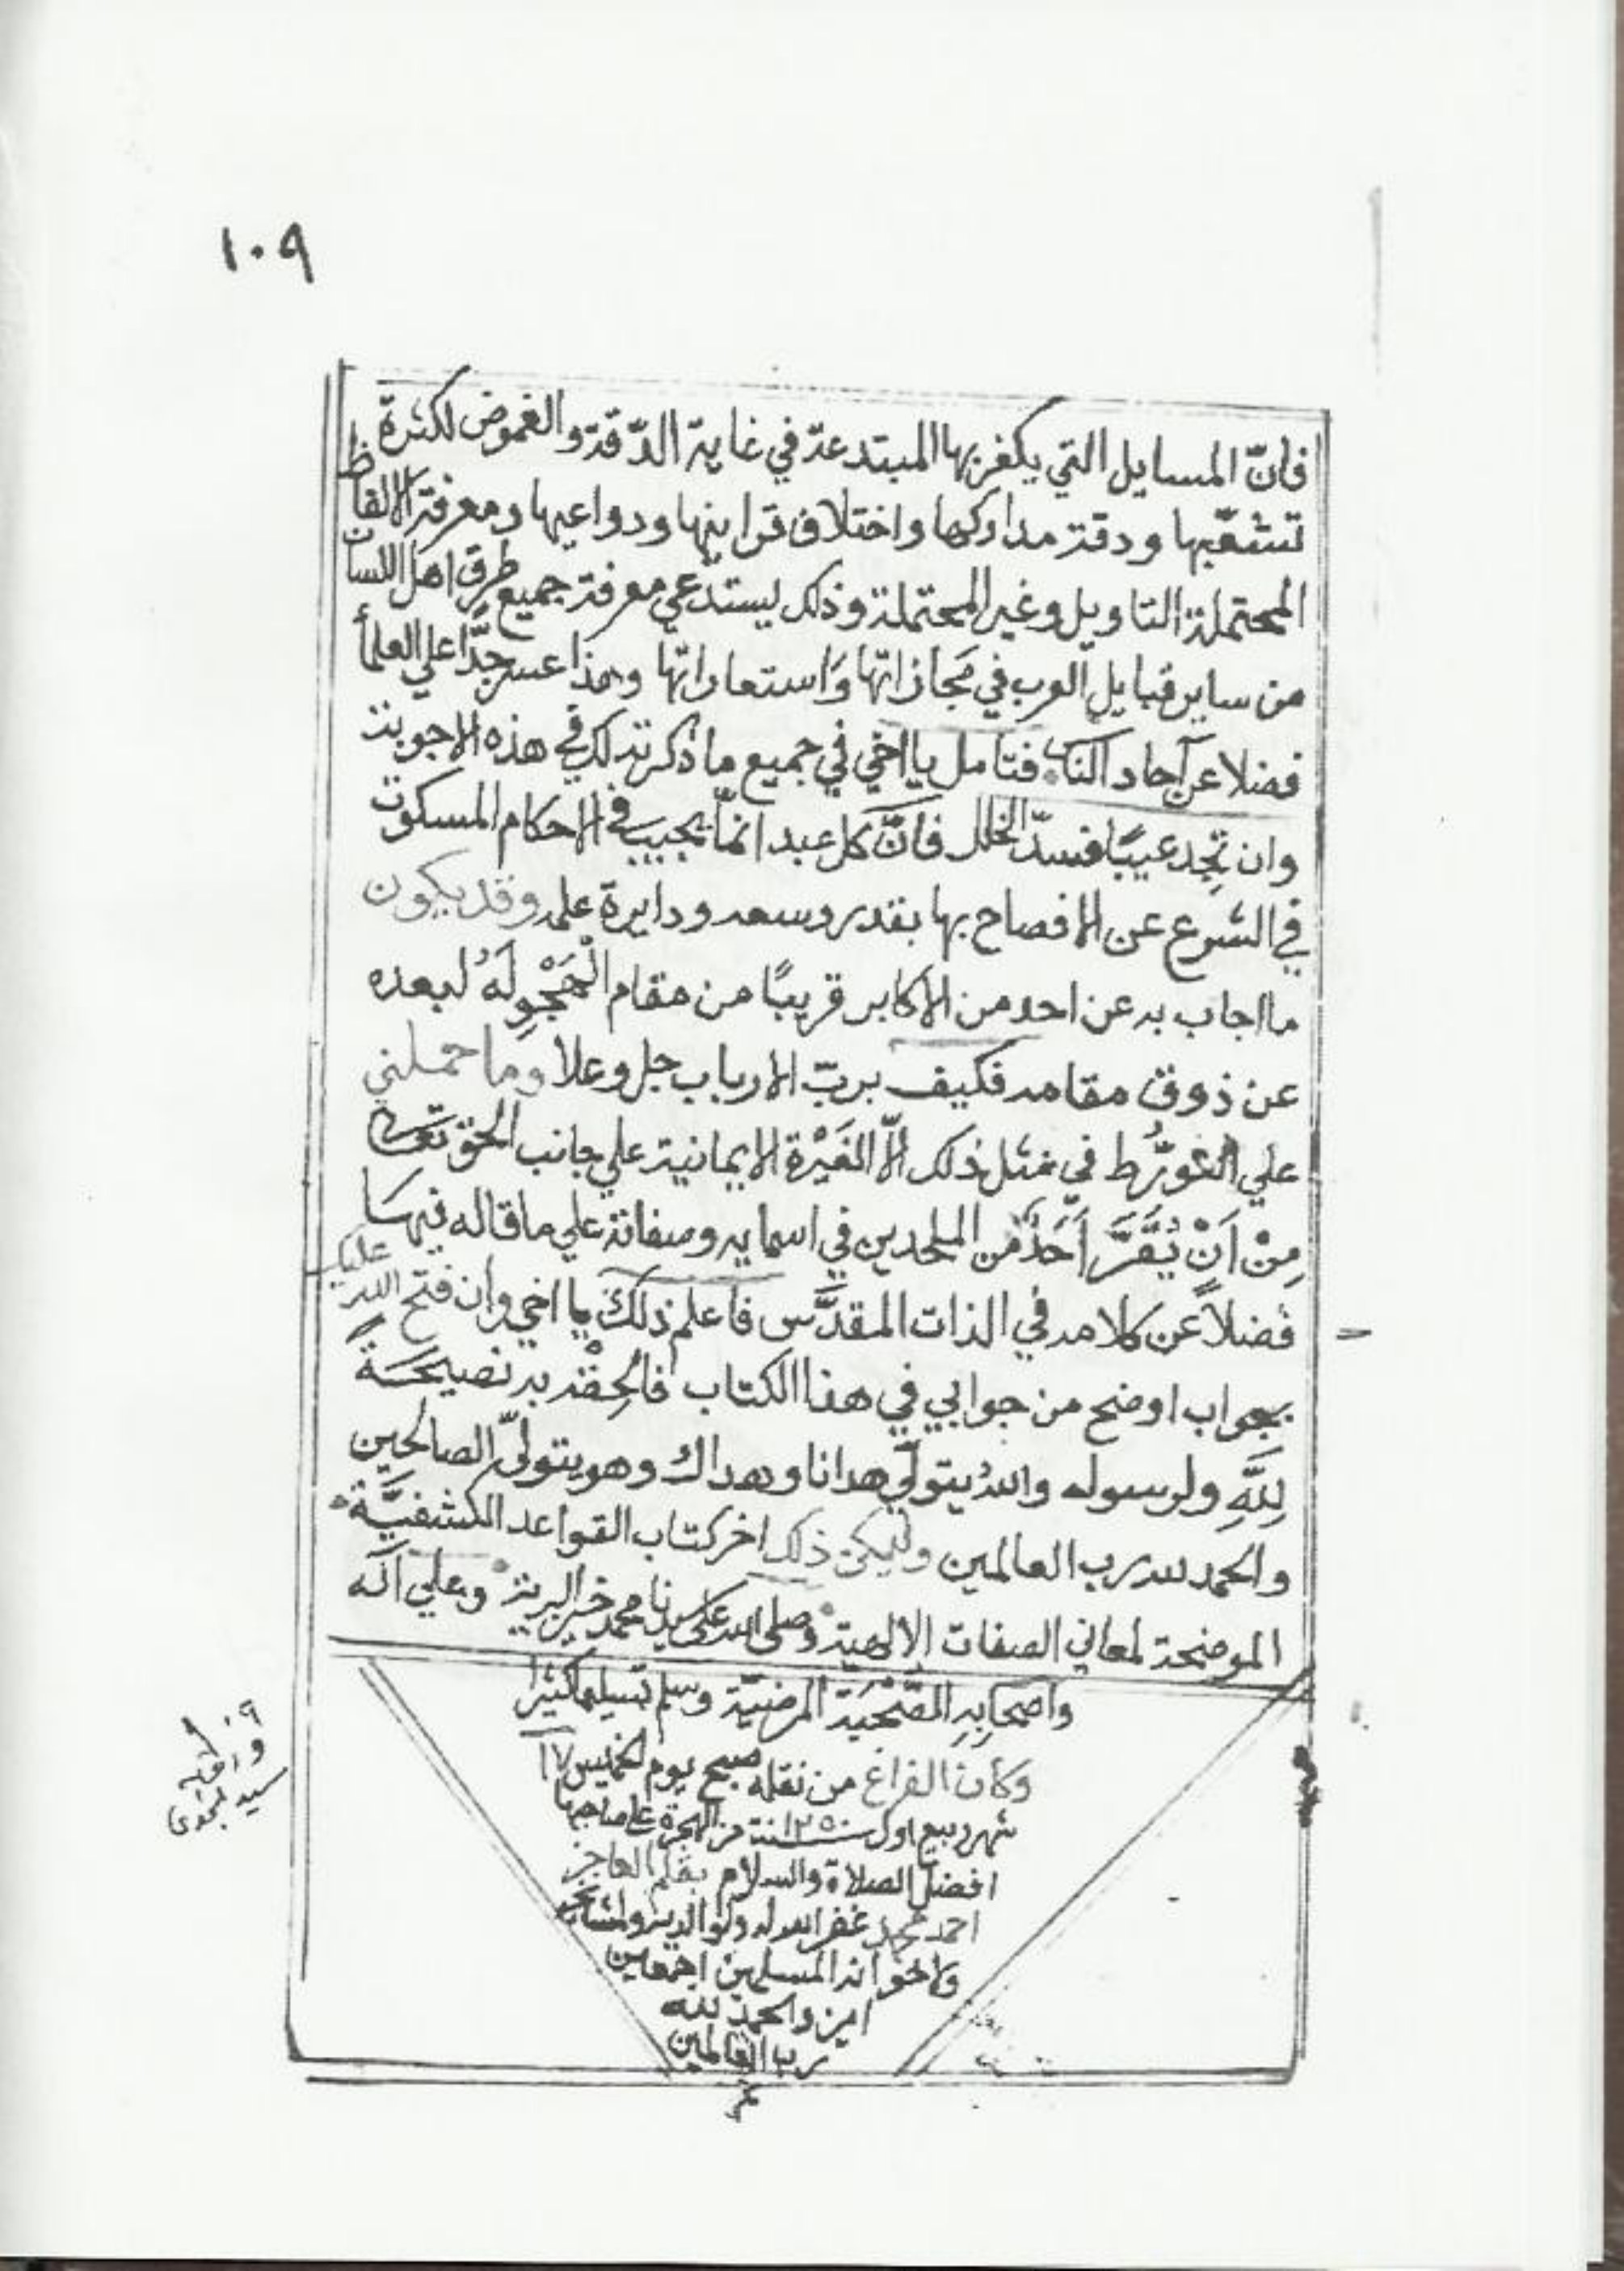 ١٠٩
فانّ المسايل التي يكفر بها المبتدعة في غاية الدّقة والغموض لكثرة
تشعّبها ودقة مداركها واختلاف قراينها ودواعيها ومعرفة الالفاظ
المحتملة التاويل وغير المحتملة وذلك يستدعي معرفة جميع طرق اهل اللسان
من ساير قبايل العرب في مجازاتها واستعاراتها وهذا عسر جدّا علي العلمأ
فضلا عن آحاد الناس فتامل يا اخي في جميع ما ذكرته لك في هذه الاجوبة
وان تجد عيبًا فسدّ الخلل فانّ كل عبد انمّا يجيب في الاحكام المسكوت
في الشرع عن الافصاح بها بقدر وسعه ودايرة علمه وقد يكون
ما اجاب به عن احد من الاكابر قريبًا من مقام الْهَجْوِ لَهُ لبعده
عن ذوق مقامه فكيف بربّ الارباب جل وعلا وما حملني
علي التورُّط في مثل ذلك الّا الغَيْرة الايمانية علي جانب الحق تعالى
مِنْ اَنْ يُقَرَّ اَحَدٌ من الملحدين في اسمايه وصفاته علي ما قاله فيها
فضلاً عن كلامه في الذات المقدَّس فاعلم ذلك يا اخي وان فتح الله عليك
بجواب اوضح من جوابي في هذا الكتاب فالحِقْه به نصيحَةً
لِلَّهِ ولرسوله واللهُ يتولّي هدانا وهداك وهو يتولّي الصالحين
والحمد لله رب العالمين وليكن ذلك اخر كتاب القواعد الكشفيَّة
الموضحة لمعاني الصفات الالهية وصلى الله على سيدنا محمد خير البرية وعلي آله
واصحابِهِ المرضيّة وسلم تسليما كثيرا
وكان الفراغ من نقله صبح يوم الخميس ١٧
شهر ربيع اول سنة ١٢٥٠ من الهجرة على صاحبها
افضل الصلاة والسلام بقلم العاجز
احمد محمد غفر الله له ولوالديه ولمشايخه
ولاخوانه المسلمين اجمعين
امين والحمد لله
رب العالمين